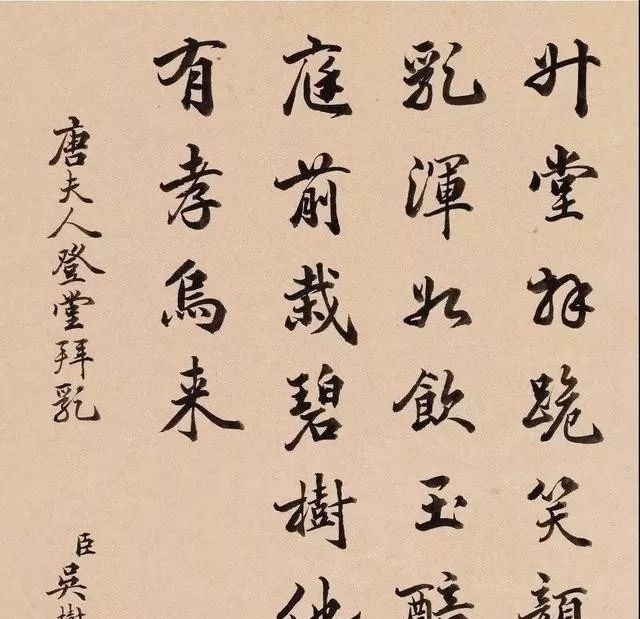 升堂拜跪笑顔
乳渾如飲玉
庭前栽碧樹
有孝烏来
唐夫人登堂拜乳
臣吳樹